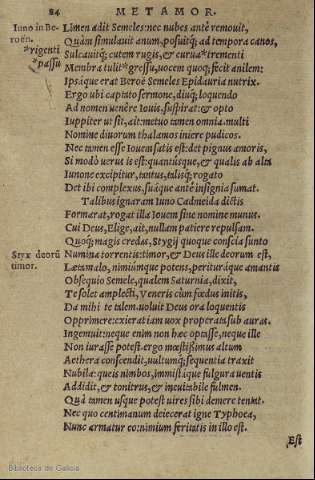 84 METAMOR.
Iuno in Be-
roën.
*rigenti
*passu
Limen adit Semeles: nec nubes antè remouit,
Quàm simulauit anum, posuitq; ad tempora canos,
Sulcauitq; cutem rugis, & curua *trementi
Membra tulit *gressu, uocem quoq; fecit anilem:
Ipsáque erat Beroë Semeles Epidauria nutrix.
Ergo ubi captato sermone, diuq; loquendo
Ad nomen uenêre Iouis, suspirat: & opto
Iuppiter ut sit, ait: metuo tamen omnia. multi
Nomine diuorum thalamos iniere pudicos.
Nec tamen esse Iouem satis est: det pignus amoris,
Si modò uerus is est: quantúsque, & qualis ab alta
Iunone excipitur, tantus, talisq; rogato
Det tibi complexus. suáque antè insignia sumat.
Talibus ignaram Iuno Cadmeida dictis
Formarat, rogat illa Iouem sine nomine munus.
Cui Deus, Elige, ait, nullam patiere repulsam.
Quoq; magis credas, Stygij quoque conscia sunto
Styx deorũ
timor.
Numina torrentis: timor, & Deus ille deorum est,
Læta malo, nimiúmque potens, perituráque amantis
Obsequio Semele, qualem Saturnia, dixit,
Te solet amplecti, Veneris cùm fœdus initis,
Da mihi te talem. uoluit Deus ora loquentis
Opprimere: exierat iam uox properata sub auras.
Ingemuit: neque enim non hæc optasse, neque ille
Non iurasse potest. ergo mœstissimus altum
Aethera conscendit, uultumq; sequentia traxit
Nubila: queis nimbos, immistáque fulgura uentis
Addidit, & tonitrus, & ineuitabile fulmen.
Quà tamen usque potest uires sibi demere tentat.
Nec quo centimanum deiecerat igne Typhoea,
Nunc armatur eo: nimium feritatis in illo est.
Est
Biblioteca de Galicia